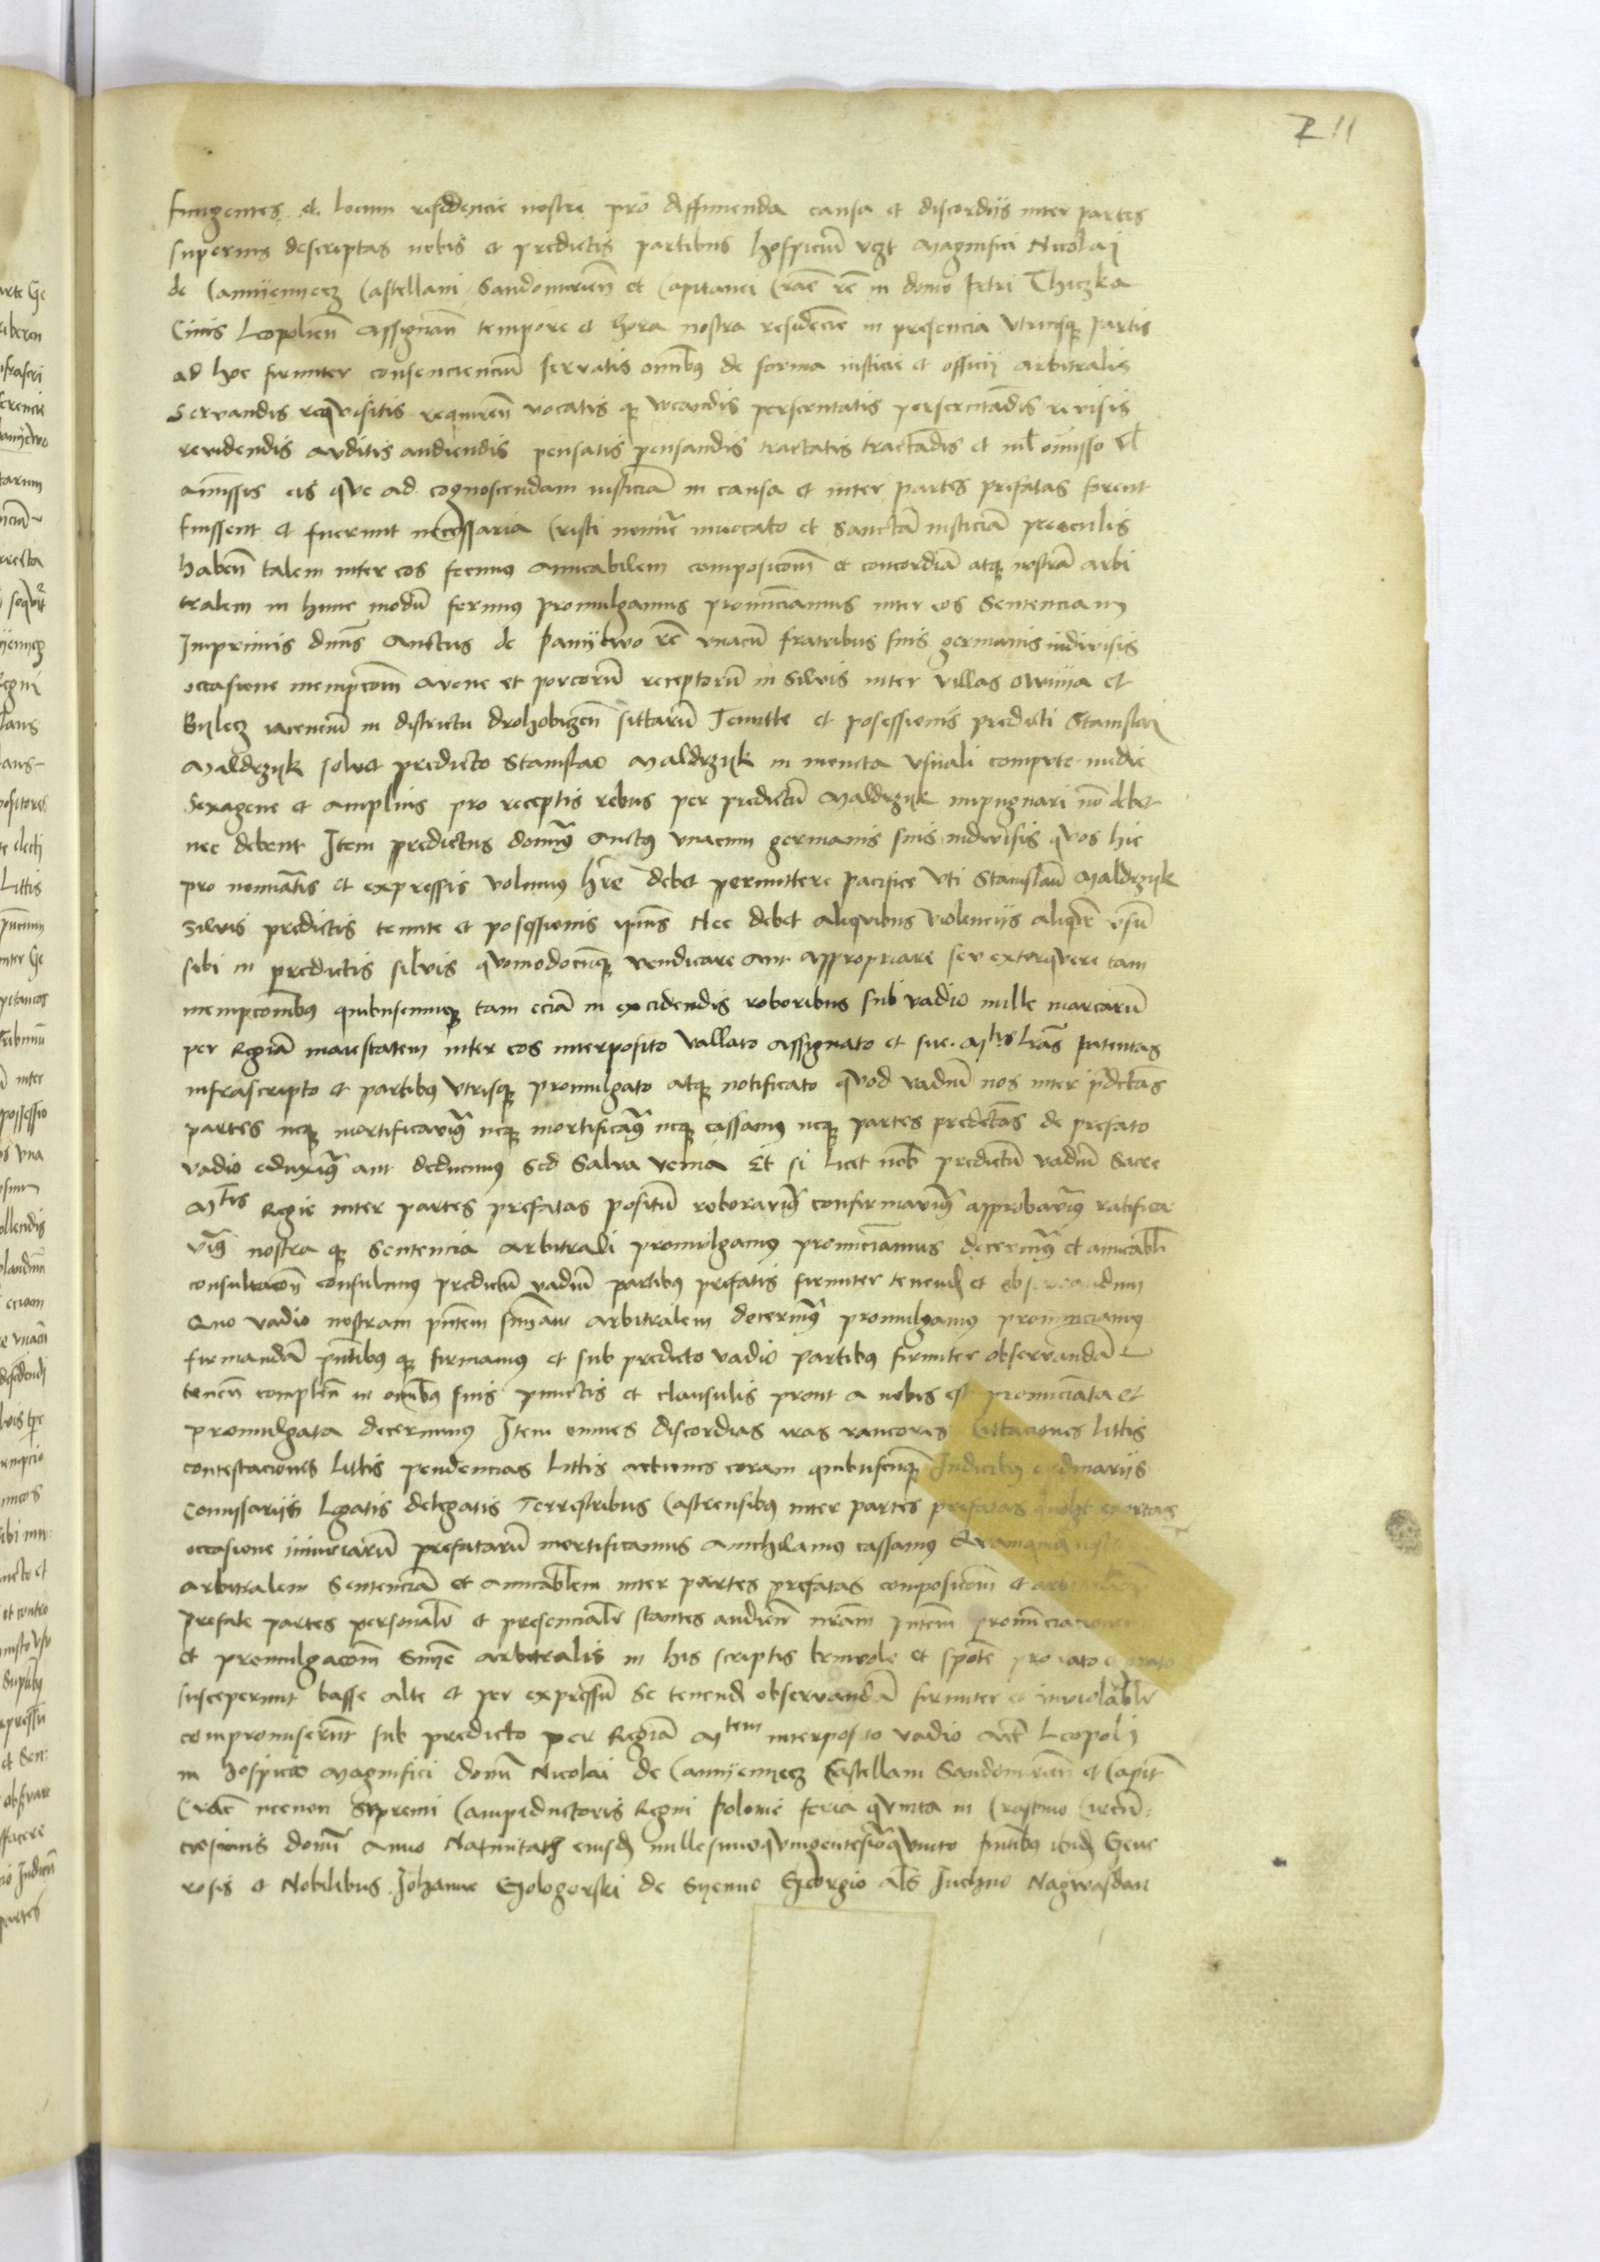 211
fungentes et locum residencie nostre pro diffinienda causa et discordiis inter partes
superius descriptas nobis et predictis partibus hospiciū vz̄t Magnifici Nicolai
de Camyenyecz Castellani Sandomirieñ et Capitanei Crac̄ rc̄ in domo Petri Thiczka
Civis Leopolieñ assignañ tempore et hora nostra residēcie in presencia utriusq partis
ad hoc firmiter consenciencium servatis omībus de forma iusticie et officii arbitralis
servandis requisitis requireñ vocatis q vocandis perscrutatis perscrutādis revisis
revidendis auditis audiendis pensatis pensandis tractatis tractādis et nil omisso vl
amissis eis que ad cognoscendam iusticiā in causa et inter partes prefatas forent
fuissent et fuerunt necessaria Cristi nomīe invocato et sanctā iusticiā pre oculis
habeñ talem inter eos fecimus amicabilem composicōm et concordiā atq nostrā arbi
tralem in hunc modū ferimus promulgamus pronūciamus inter eos sentenciam
Imprimis dñus Anctus de Panyowo rc̄ unacū fratribus suis germanis indivisis
occasione mempcōm avene et porcorū receptorū in silvis inter villas Ownya et
Bylcz iacenciū in districtu drohobiczeñ sittarū Tenutte et posessionis predicti Stanislai
Maldrzyk solvet predicto Stanislao Maldrzyk in moneta usuali compute medie
sexagene et amplius pro receptis rebus per predictū Maldrzyk impugnari nō debet
nec debent Item predictus domīus Anctus unacum germanis suis indivisis quos hic
pro nomīatis et expressis volumus hr̄e debet permittere pacifice uti Stanislaū Maldrzyk
silvis predictis tenute et posessionis ipius Nec debet aliquibus violenciis aliquē usū
sibi in predictis silvis quomodocūq vendicare aut appropriare seu extorquere tam
mempcombus quibuscumq tam eciā in excidendis roboribus sub vadio mille marcarū
per Regiā maiestatem inter eos interposito vallato assignato et sue Mtis lrās patentas
infrascripto et partibus utrisq promulgato atq notificato quod vadiū nos inter pdctās
partes neq mortificavimus neq mortificamus neq cassamus neq partes predictas de prefato
vadio eduximus aut deducimus sed salva venia Et si licet nob predictū vadiū Sacre
Mtis Regie inter partes prefatas positū roboravimus confirmavimus approbavimus ratifica
vimus nostra q sentencia arbitrali promulgamus pronūciamus decernimus et amicabli
consultacōñ consulimus predictū vadiū partibus prefatis firmiter tenend et observandum
Quo vadio nostram pntem sniam arbitralem decernimus promulgamus pronunciamus
firmandā pntibus q firmamus et sub predicto vadio partibus firmiter observandā
teneñ compleñ in omībus suis punctis et clausulis prout a nobis est pronūciata et
promulgata decernimus Item omnes discordias iras rancores Citaciones littis
contestaciones littis pendencias littis actiones coram quibuscūq Iudicibus ordinariis
Comissariis legatis delegatis Terrestribus Castrensibus inter partes prefatas exortas
occasione iniuriarū prefatarū mortificamus annichilamus cassamus
arbitralem sentenciā et amicablem inter partes prefatas composicōm et
prefate partes personalr et presencialr stantes audieñ nrām pntem pronūciacionem
et promulgacōm snīe arbitralis in his scriptis bnivole et spōte
susceperunt basse alte et per expressū se tenend observandā firmiter et inviolablr
compromiserūt sub predicto per Regiā Mtem interposito vadio Act Leopoli
in hospicio Magnifici domī Nicolai de Camyenyecz Castellani Sandomirieñ et Capit
Crac̄ necnon supremi Campiductoris Regni Polonie feria quinta in Crastino Circū
cisionis domī Anno Nativitatis eiusd millesimoquingentesimoquinto pntibus ibid Gene
rosis et Nobilibus Iohanne Gologorski de Syenno Georgio als Iuchno Nagwasdan